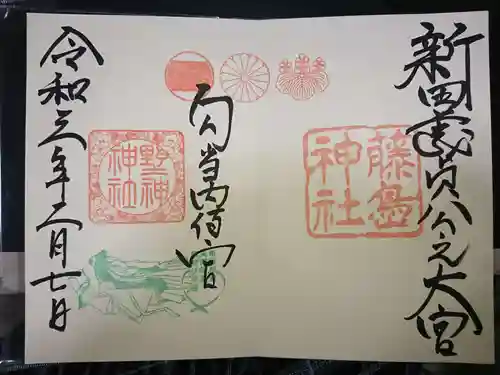 新田義貞公之大宮
藤島
神社
勾当内侍宮
野神
神社
令和三年二月七日